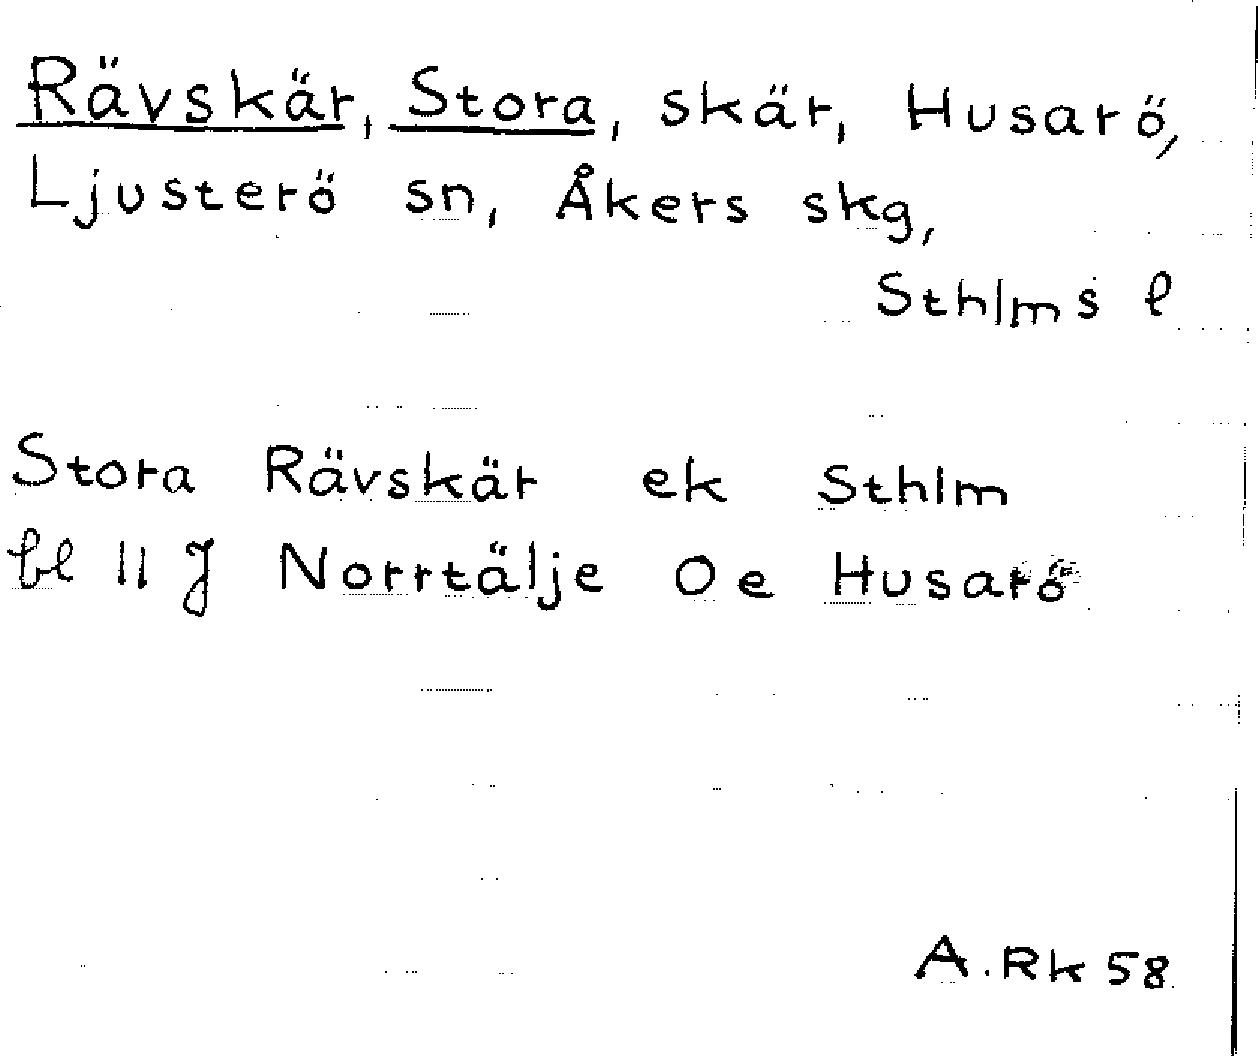 Rävskär, Stora, skär, Husarö,
Ljusterö sn, Åkers skg,
Sthlms l
Stora Rävskär ek Sthlm
bl 11 J Norrtälje Oe Husarö
A.Rk 58